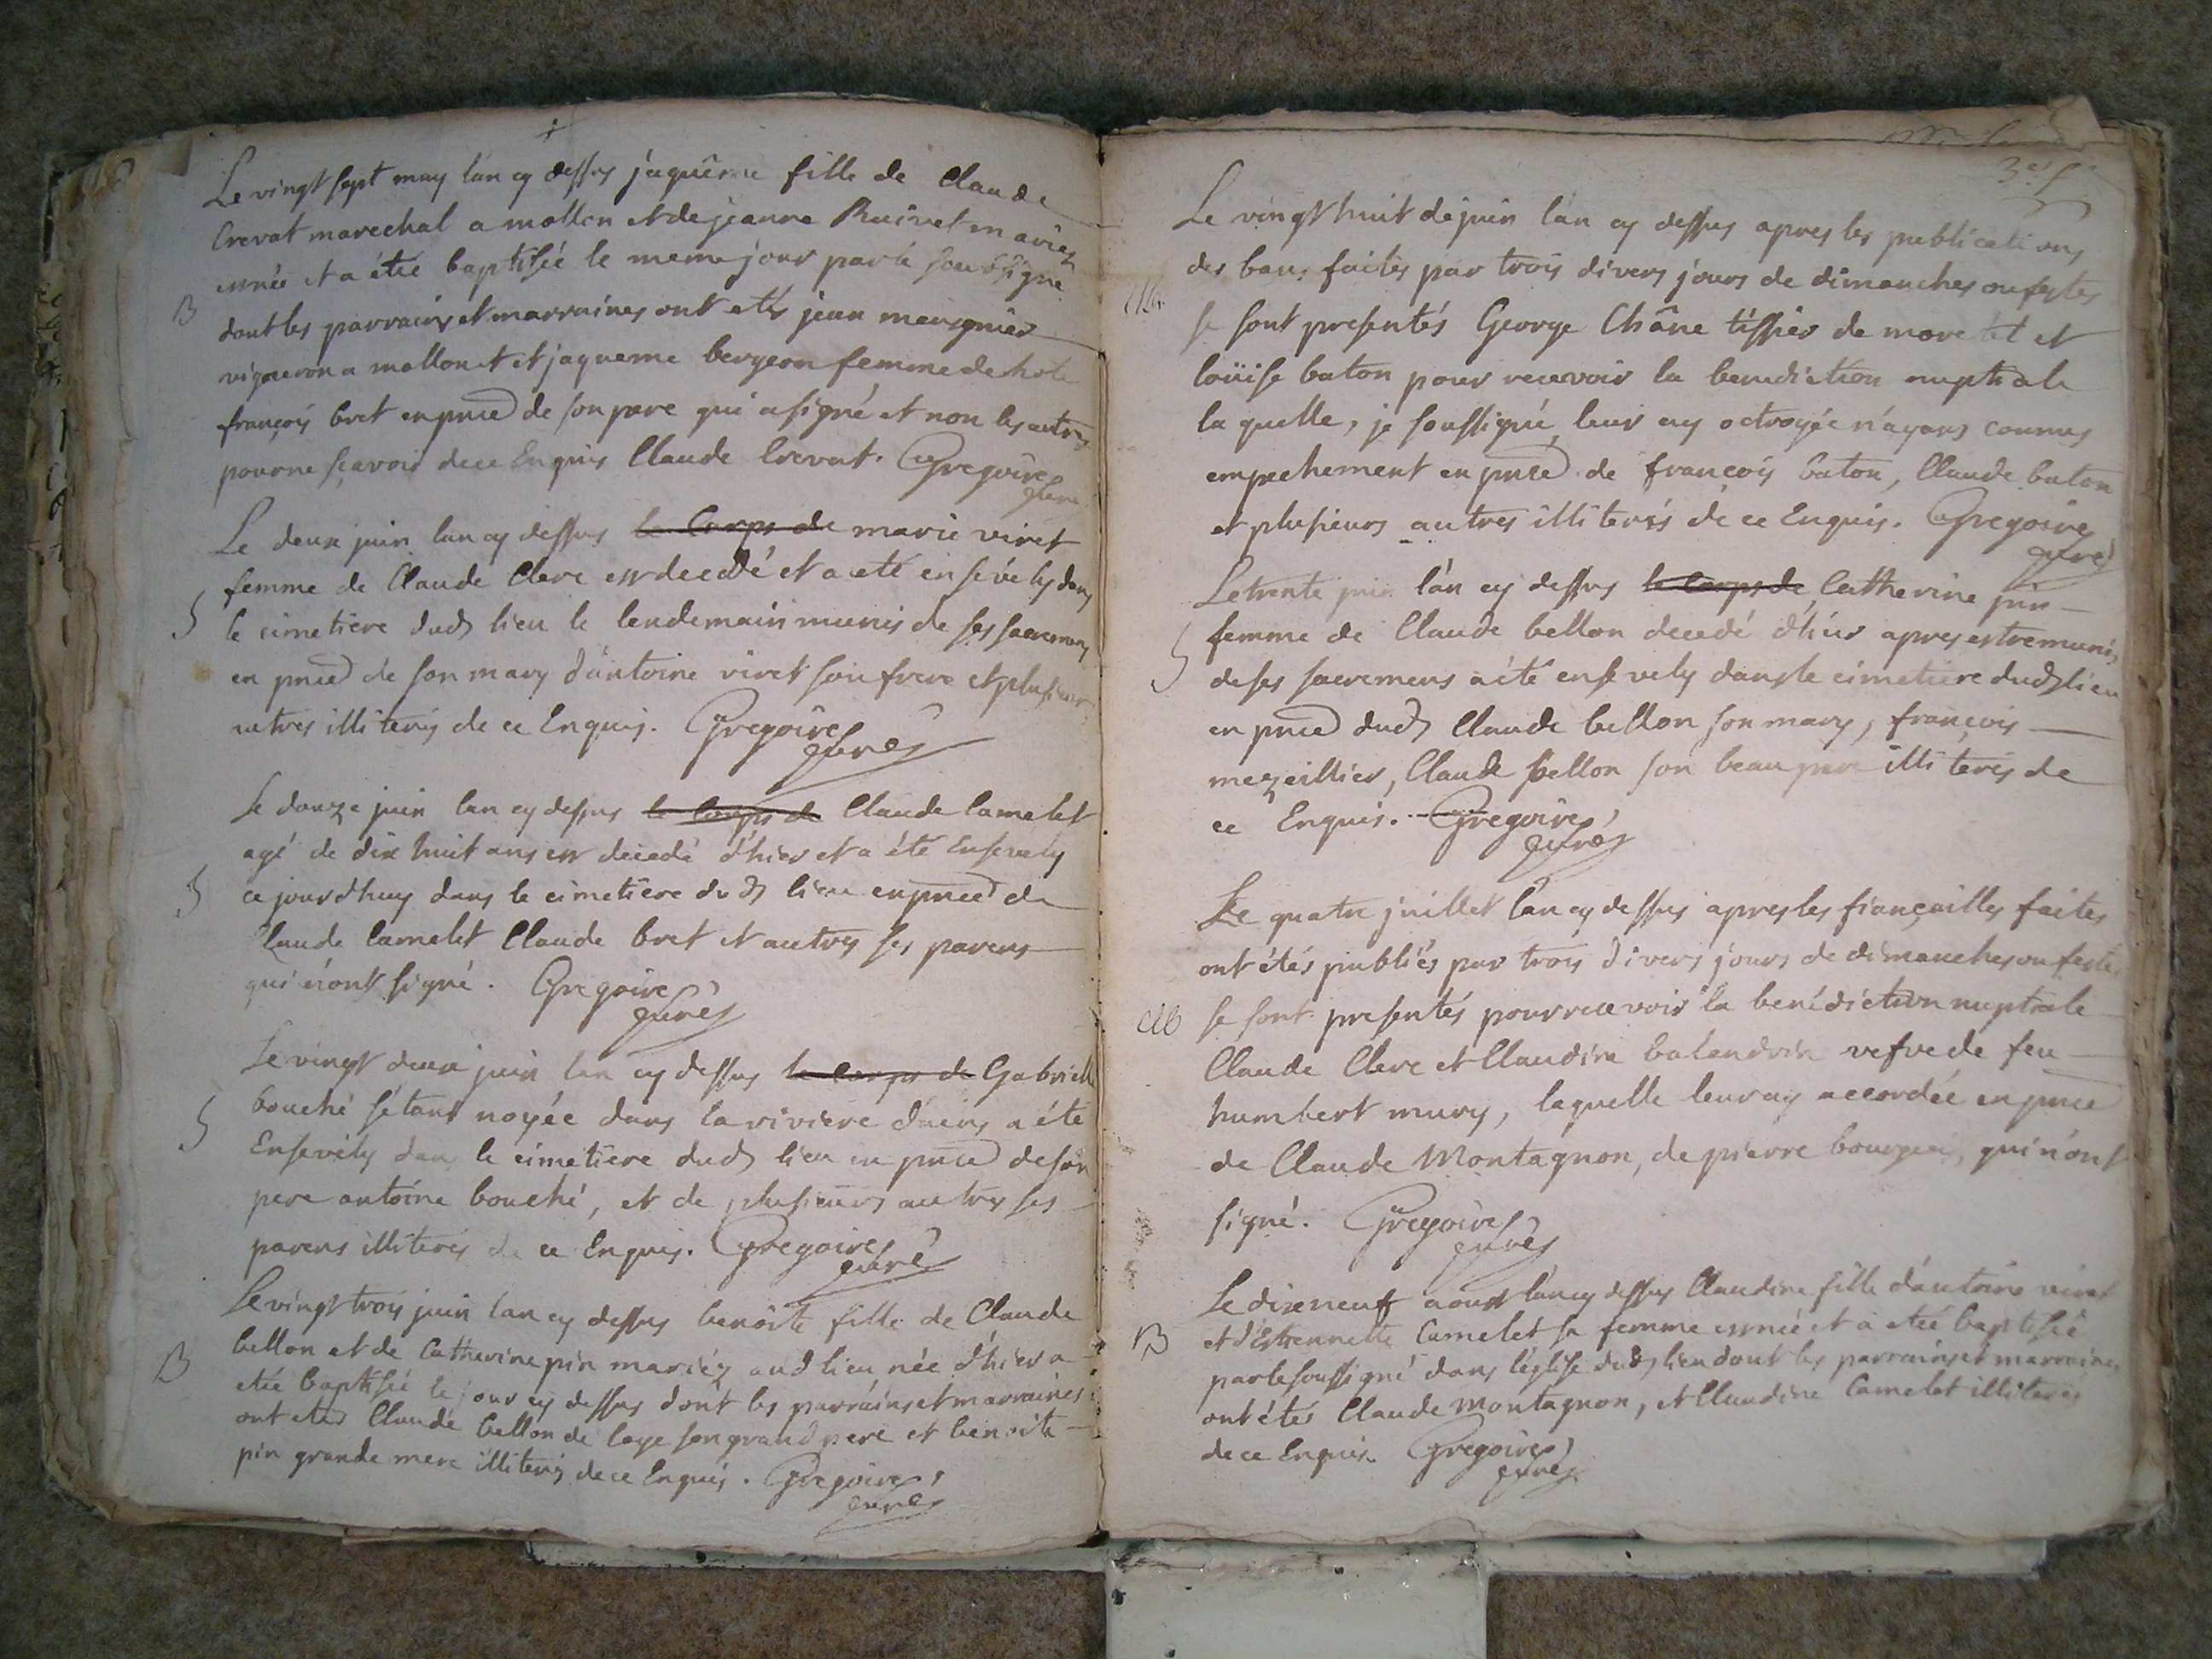 Le vingt sept may lan cy dessus jaquême fille de Claude
Crevat marechal a mollon et de jeanne Ruivet mariez
esnée et a étée baptisée le meme jour par le soussigné
B
dont les parrains et marraines ont etés jean meusgnier
vigneron a mollon et jaqueme bergeron femme de
françois bret en pnce de son pere qui a signé et non les autres
pour ne sçavoir de ce Enquis Claude Crevat. Gregoire
curé
Le deux juin lan cy dessus le Corps de marie viret
femme de Claude Clerc est decedé et a eté ensévely dans
S
le cimetiere dud lieu le lendemain munis de ses sacremens
en pnce de son mary d'antoine viret son frere et plusieurs
autres illiterés de ce Enquis. Gregoire
curé
Le douze juin lan cy dessus le Corps de Claude Camelet
agé de dix huit ans est decedé d'hier et a été Ensevely
S
ce jourdhuy dans le cimetiere dud lieu en pnce de
Claude Camelet Claude bret et autres ses parens
qui n'ont signé. Gregoire
curé
Le vingt deux juin lan cy dessus le corps de Gabrielle
bouché s'étant noyée dans la riviere d'ains a été
S
Ensevély dans le cimetiere dud lieu en pnce de son
pere antoine bouché, et de plusieurs autres ses
parens illiterés de ce Enquis. Gregoire
curé
Le vingt trois juin lan cy dessus benoite fille de Claude
bellon et de Catherine pin mariéz aud lieu née d'hier a
B
etée baptisée le jour cy dessus dont les parrains et marraines
ont etés Claude bellon de loye son grand pere et benoite
pin grande mere illiterés de ce Enquis. Gregoire
curé
Le vingt huit de juin lan cy dessus apres les publications
des bans faites par trois divers jours de dimanches ou festes
M
se sont presentés George Châne tissier de
et
loüise baton pour recevoir la benediction nuptiale
la quelle, je soussigné, leur ay octroyée n'ayans connus
empechement en pnce de françois baton, Claude baton
et plusieurs autres illiterés de ce Enquis. Gregoire
curé
Le trente juin l'an cy dessus le corps de Catherine pin
femme de Claude bellon decedé d'hier apres estre munis
S
de ses sacremens a été ensevely dans le cimetiere dud lieu
en pnce dud Claude bellon son mary, françois
mezeillier, Claude bellon son beau pere illiterés de
ce Enquis. Gregoire
curé
Le quatre juillet l'an cy dessus apres les fiançailles faites
ont étés publiés par trois divers jours de dimanches ou festes
M
se sont presentés pour recevoir la benédiction nuptiale
Claude Clerc et Claudine balandrin vefve de feu
humbert mury, laquelle leur ay accordée en pnce
de Claude Montagnon, de pierre bourgeois, qui n'ont
signé. Gregoire
curé
Le dixneuf aoust lan cy dessus Claudine fille d'antoine viret
B
et d'Estiennette Camelet sa femme esnée et a etée baptisée
par le soussigné dans l'église dud lieu dont les parrains et marraines
ont étés Claude montagnon, et Claudine Camelet illiterés
de ce Enquis. Gregoire
curé